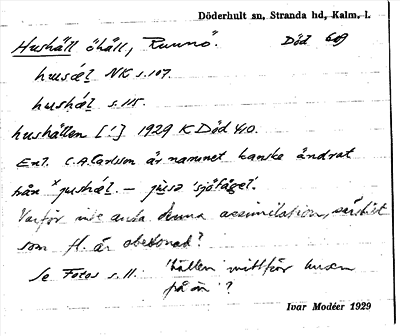 Döderhult sn, Stranda hd, Kalm. l.
Hushäll öhäll, Runnö. Död 609
husæl NK s.107.
hushæl s.115.
hushällen [ ' ] 1929 K Död 410.
Enl. C.A. Carlsson är namnet kanske ändrat
från × jushæl. –
Varför inte anta denna assimilation, särskilt
som fl. är obetonad?
Se Fotos s. 11. 'hällen mittför husen
på ön'?
Ivar Modéer 1929